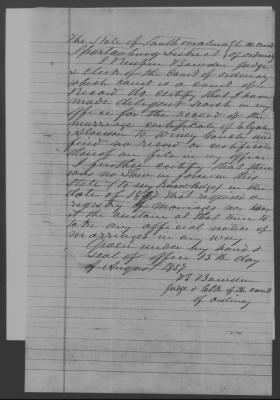 The State of South Carolina In the Court
Spartanburg District of ordinary
I Bowden Judge
& Clerk of the Court of ordinary
which court is a court of
Record do certify that I have
made diligent search in my
office for the record of the
marriage certificate of
to and
find no record or certificate
thereof on file in my office
I further certify that there
was no law in force in this
State (to my knowledge) in the
date of that required a
registry of marriages nor was
it the custom at that time to
take any official notice of
marriages in any way
Given under my hand &
seal of office 15th day
of August 1853
Bowden
Judge & Clk of the court
of ordinary